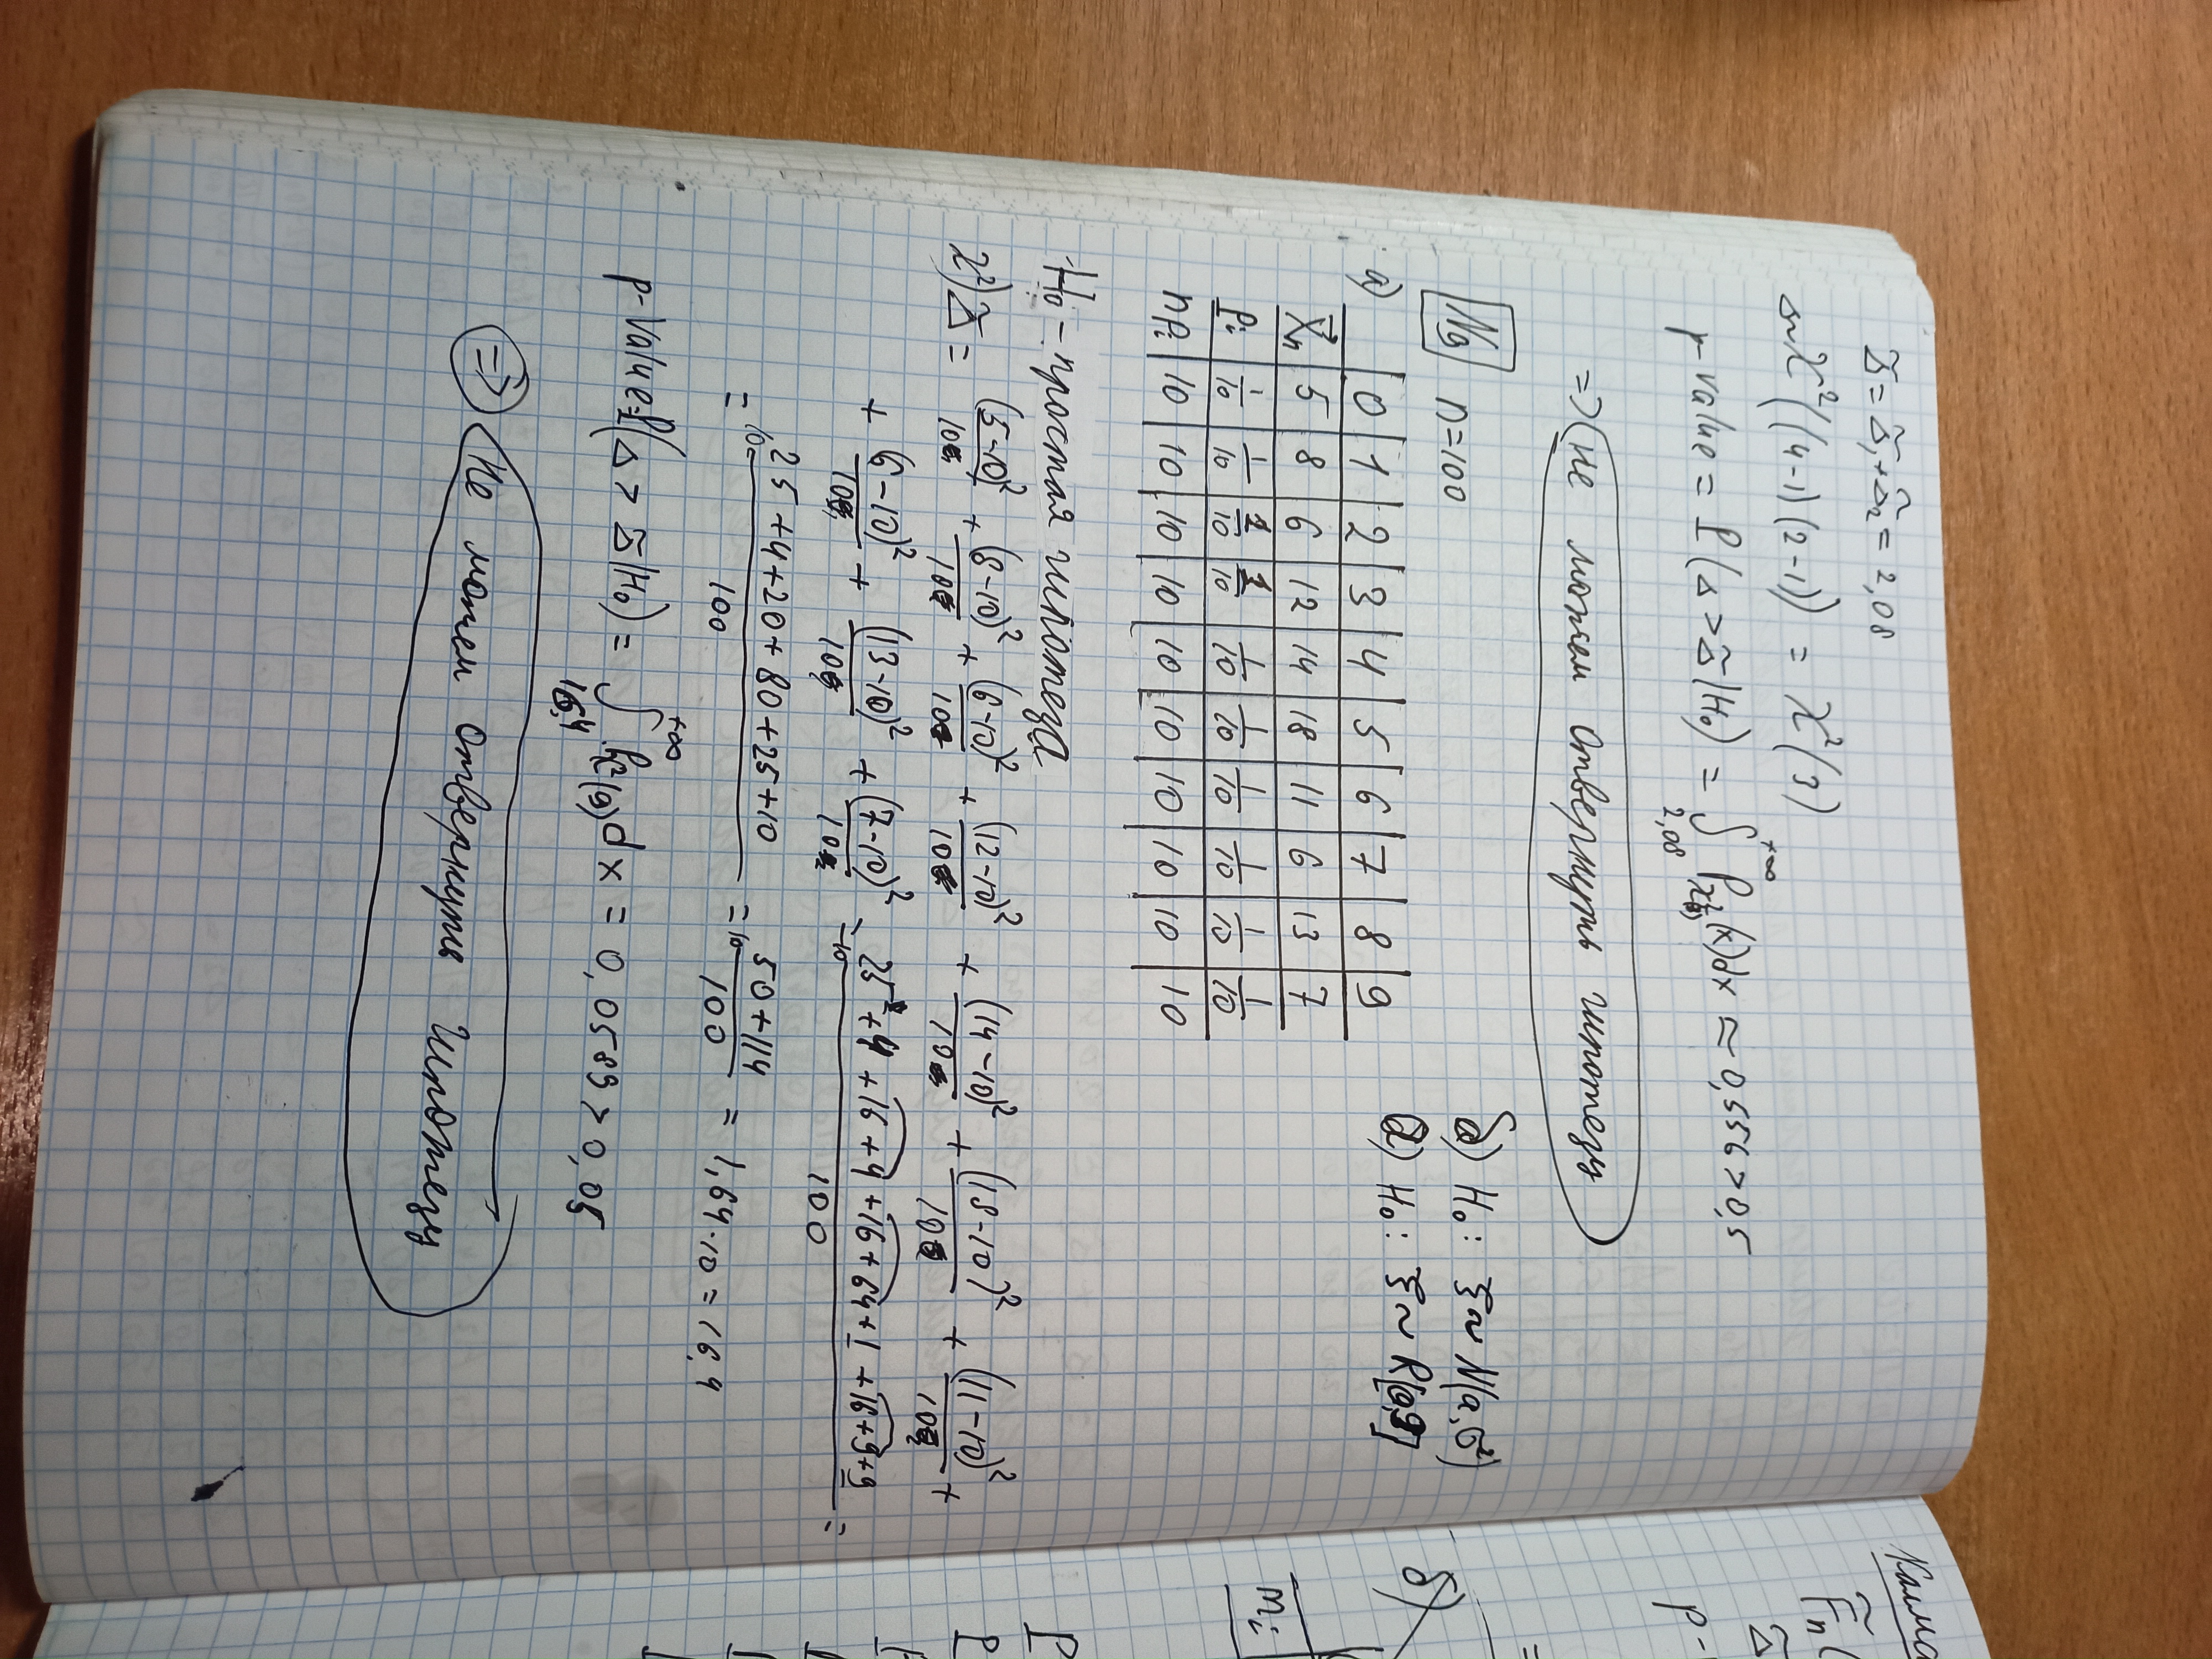 Δ̃ = Δ̃₁ + Δ̃₂ = 2,08
Δ ~ χ²((4-1)(2-1)) = χ²(3)
p-value = P(Δ > Δ̃ | H₀) = ∫_{2,08}^{+∞} P_{χ²(3)}(x)dx ≈ 0,556 > 0,5
=> не можем отвернуть гипотезу
N9 n=100
б) H₀: ξ ~ N(a,σ²)
а) H₀: ξ ~ R[0,9]
а) 0 1 2 3 4 5 6 7 8 9
X⃗ₙ 5 8 6 12 14 18 11 6 13 7
pᵢ 1/10 1/10 1/10 1/10 1/10 1/10 1/10 1/10 1/10 1/10
npᵢ 10 10 10 10 10 10 10 10 10 10
H₀ - простая гипотеза
χ²) Δ̃ = (5-10)²/10 + (8-10)²/10 + (6-10)²/10 + (12-10)²/10 + (14-10)²/10 + (18-10)²/10 + (11-10)²/10 +
+ (6-10)²/10 + (13-10)²/10 + (7-10)²/10 = 10 · (25+4+16+4+16+64+1+16+9+9)/100 =
= 10 · (25+4+20+80+25+10)/100 = 10 · (50+114)/100 = 1,64·10 = 16,4
p-value = P(Δ > Δ̃ | H₀) = ∫_{16,4}^{+∞} P_{χ²(9)}dx = 0,0589 > 0,05
=> Не можем отвернуть гипотезу
F̃ₙ(
Δ̃
p-
б)
mᵢ
P
P